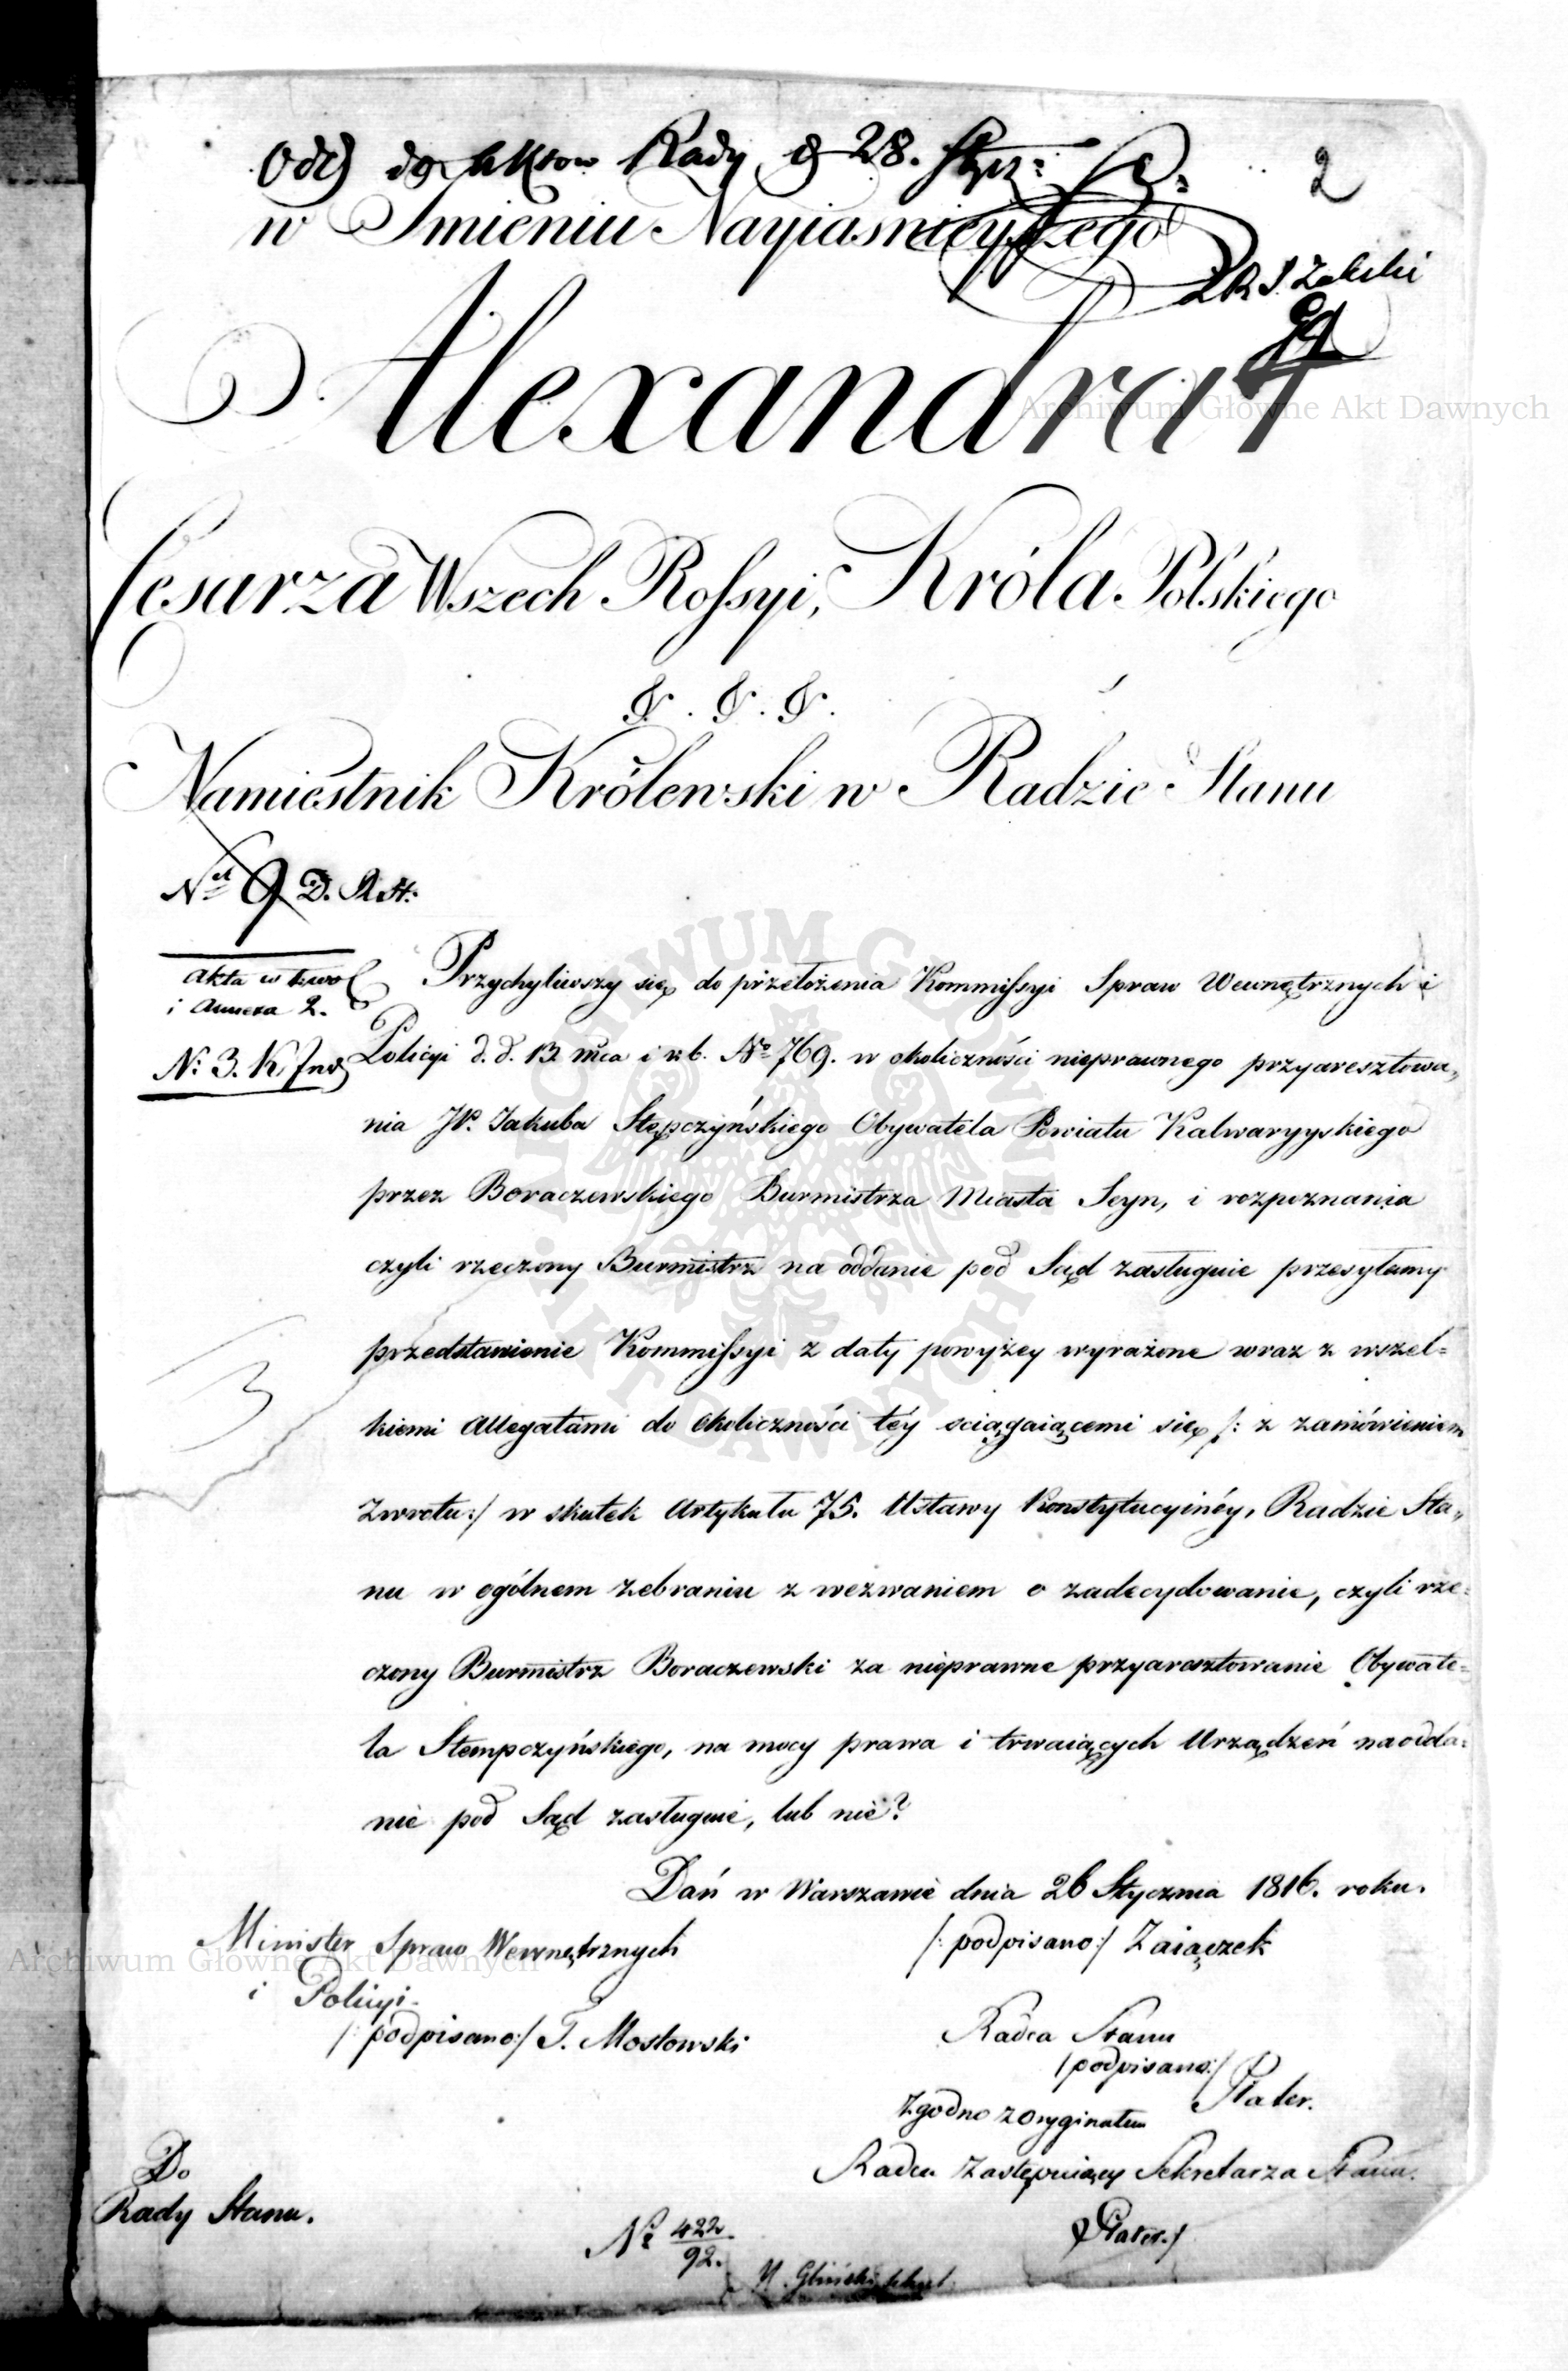 Odd do aktow Rady d 28. Stycz:
2
w Imieniu Nayiasnieyszego
Alexandra I
Cesarza Wszech Rossyi, Króla Polskiego
&. &. &.
Namiestnik Królewski w Radzie Stanu
No 9 D. R. St:
akta w
i Annexa 2.
N: 3. K
Przychyliwszy się do przełożenia Kommissyi Spraw Wewnętrznych i
Policyi d. d. 13 mca i r. b. No 769. w okoliczności nieprawnego przyaresztowa„
nia JP. Jakuba Stępczyńskiego Obywatela Powiatu Kalwaryyskiego
przez Boraczewskiego Burmistrza Miasta Seyn, i rozpoznania
czyli rzeczony Burmistrz na oddanie pod Sąd zasługuie przesyłamy
przedstawienie Kommissyi z daty powyżey wyrażone wraz z wszel=
kiemi Allegatami do okoliczności téy sciągaiącemi się /: z zamówieniem
zwrotu:/ w skutek Artykułu 75. Ustawy Konstytucyinéy, Radzie Sta„
nu w ogólnem zebraniu z wezwaniem o zadecydowanie, czyli rze=
czony Burmistrz Boraczewski za nieprawne przyaresztowanie Obywate=
la Stempczyńskiego, na mocy prawa i trwaiących Urządzeń na odda=
nie pod Sąd zasługuie, lub nie?
Dań w Warszawie dnia 26 Stycznia 1816. roku.
Minister Spraw Wewnętrznych
i Policyi.
/: podpisano:/ T. Mostowski
/: podpisano:/ Zaiączek
Radca Stanu
/podpisano:/
Plater.
Zgodno z Oryginałem
Radca Zastępuiący Sekretarza Stanu.
Plater.
Do
Rady Stanu.
No 422
92.
Archiwum Główne Akt Dawnych
Archiwum Główne Akt Dawnych
ARCHIWUM GŁÓWNE · AKT DAWNYCH ·